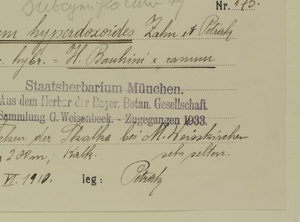 Nr. 175.
hyperdoxoides Zahn et Petrak
hybr. - H. Bauhini x
Staatsherbarium München.
Aus dem Herbar der Bayer. Botan. Gesellschaft
Sammlung G. Weisenbeck. - Zugegangen 1933.
der Skalka bei M. Weisskirchen
200 m; Kalk. sehr selten.
VI. 1910. leg: Petrak